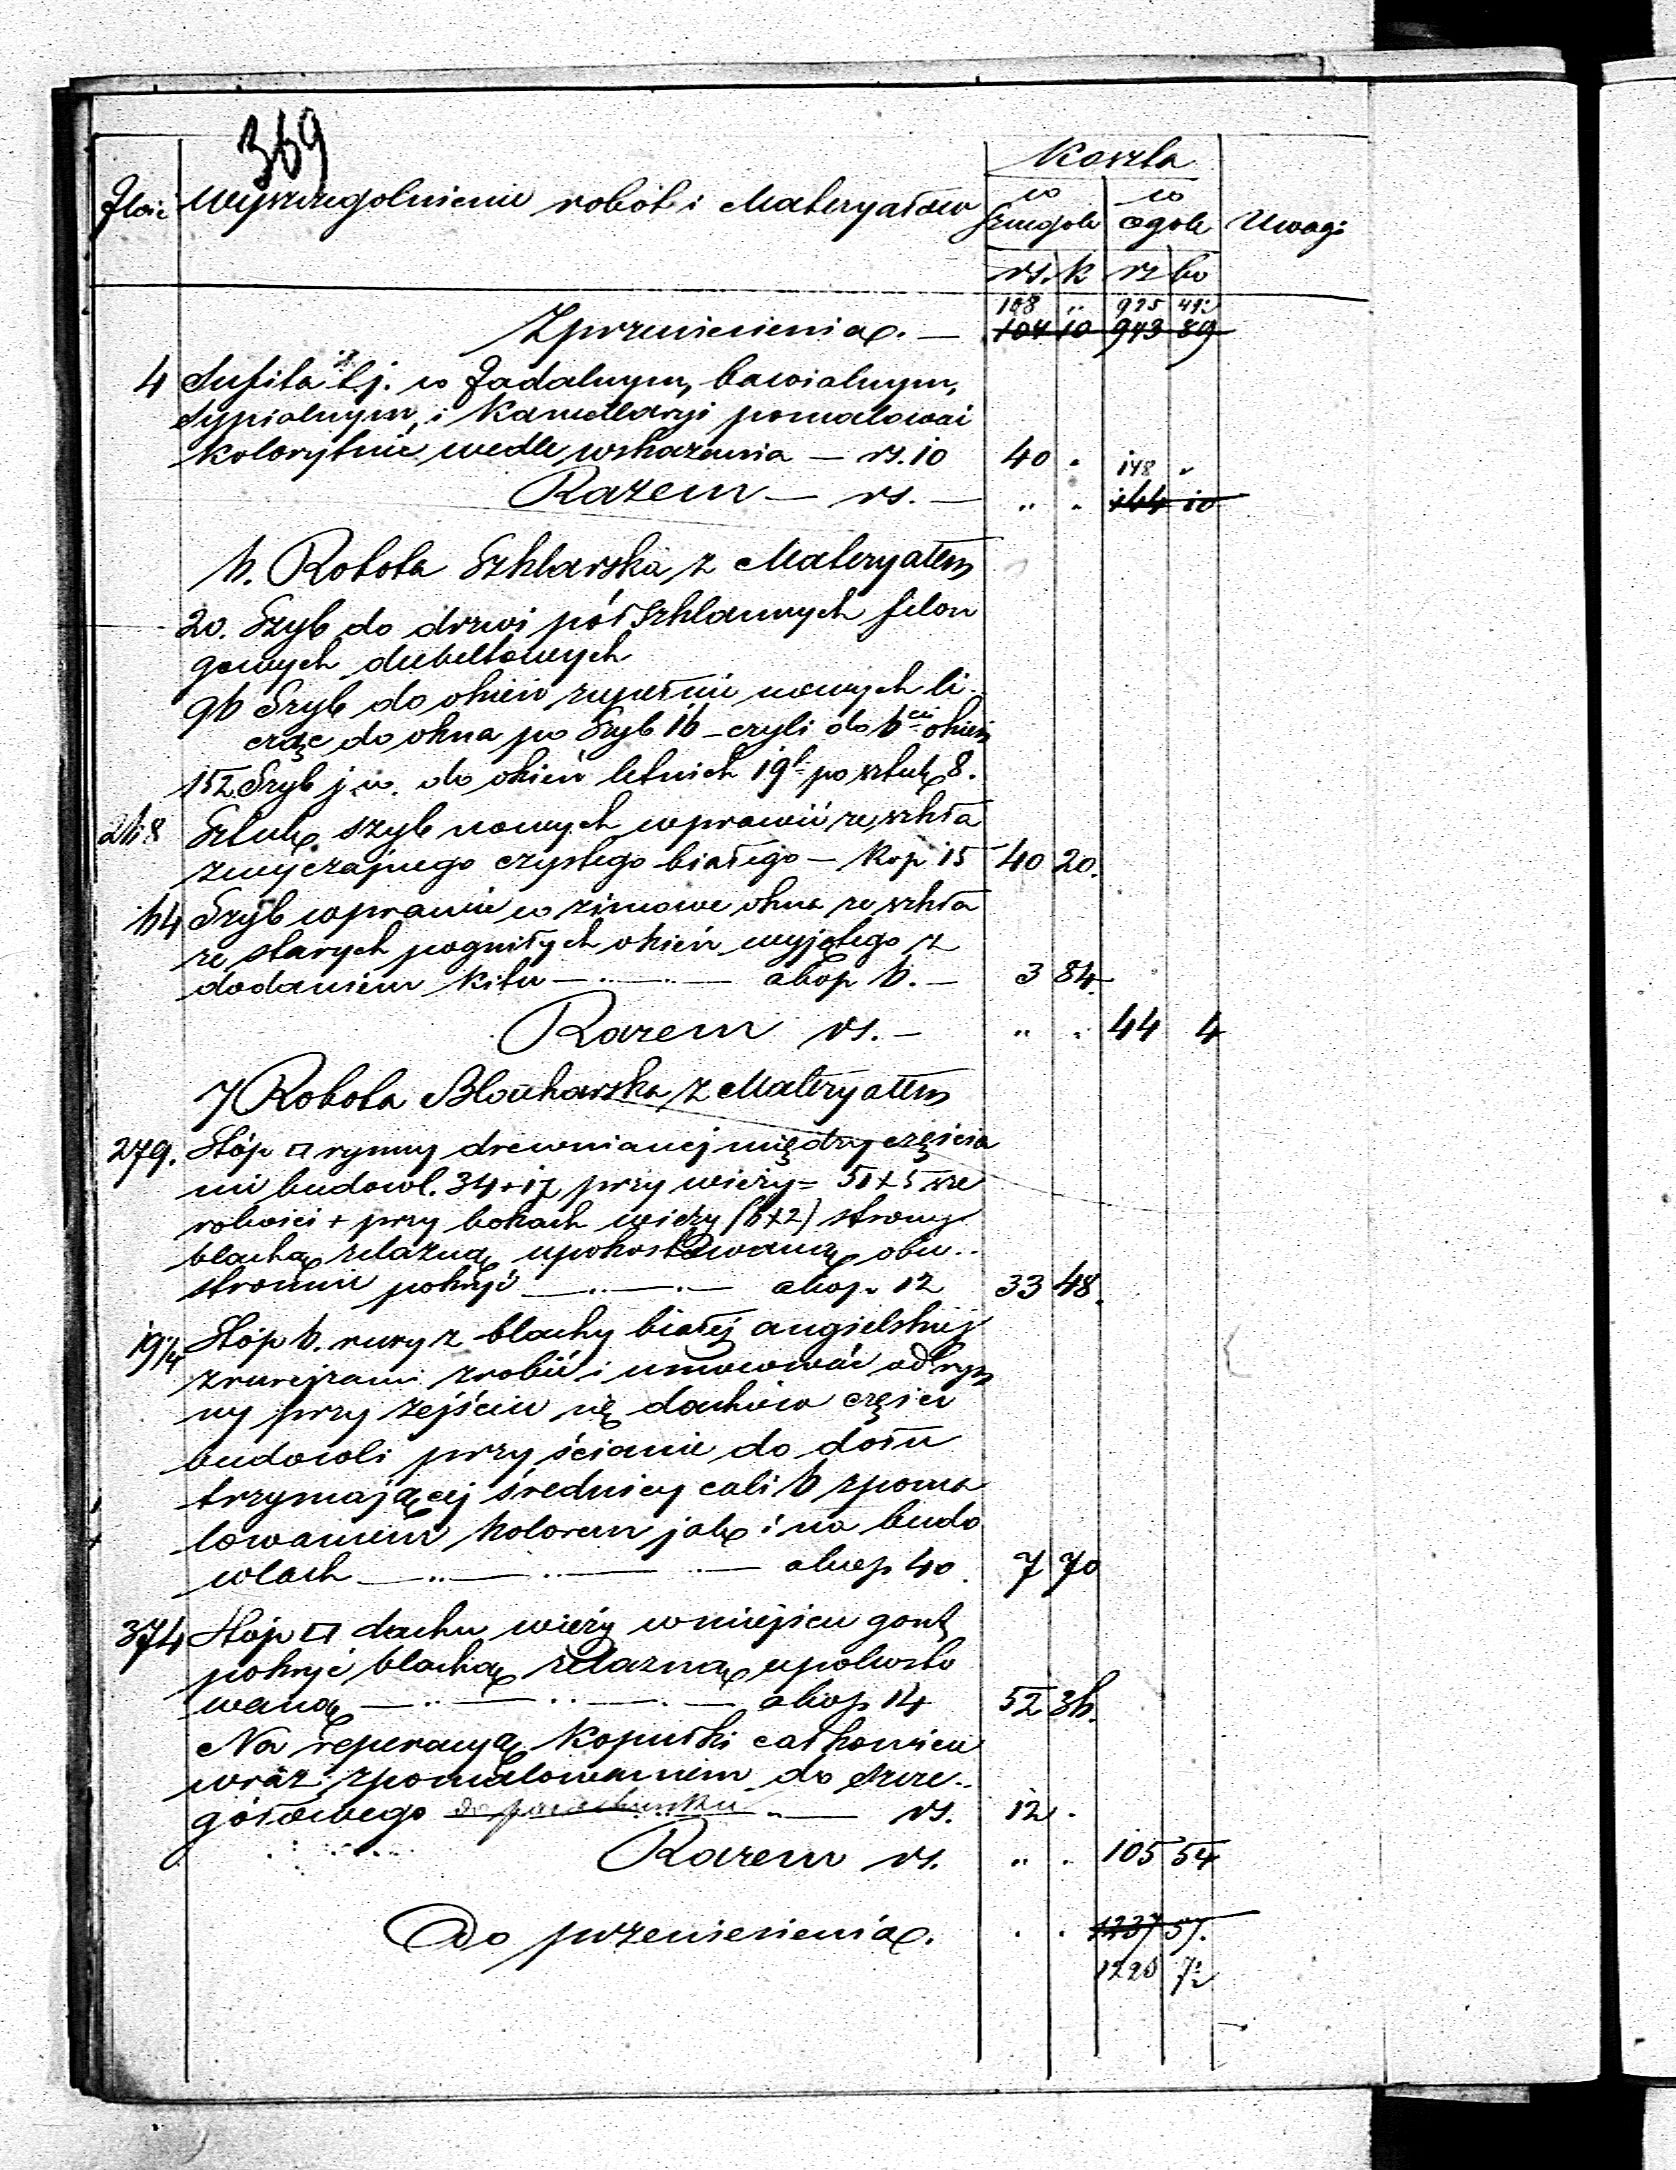 369
Koszta
Ilość Wyszczególnienie robót i Materyałów w szczegole w ogole Uwagi
rs. k rs ko
108 " 925 41½
Z przeniesienia. — 104 10 943 89
4 Sufita sz. t.j. w Jadalnym, bawialnym,
Sypialnym, i Kancellaryi pomalować
kolorytnie wedle wskazania — rs. 10 40 . 148 "
Razem — rs. — " . 144 10
6. Robota Szklarska z Materyałem
20. Szyb do drzwi pół szklannych filon
gowych dubeltowych
96 Szyb do okien zupełnie nowych li
cząc do okna po Szyb 16 – czyli do 6ciu okien
152 Szyb j.w. do okien letnich 19t po sztuk 8.
268 Sztuk szyb nowych wprawić ze szkła
zwyczajnego czystego białego — kop 15 40 20.
64 Szyb wprawić w zimowe okna ze szkła
ze starych pognitych okien wyjętego z
dodaniem kitu — " — " — akop 6. — 3 84.
Razem rs. — " . 44 4
7 Robota Blacharska z Materyałem
279. Stóp □ rynny drewnianej między częścia
mi budowl. 34+17 przy wieży = 51 x 5 sze
rokości + przy bokach wieży (6x2) strony
blachą żelazną upokostowaną obu..
stronnie pokryć — " — " — akop. 12 33 48.
19¼ Stóp b. rury z blachy białej angielskiej
z rurejzami zrobić i umocować od ryn
ny przy zejściu się dachów części
budowli przy ścianie do dołu
trzymającej średnicy cali 6 z poma
lowaniem kolorem jak i na budo
wlach — " — " — " — akop 40. 7 70
374 Stóp □ dachu wieży w miejscu gont
pokryć blachą żelazną upokosto
waną — " — " — " — akop 14 52 36.
Na reperacyą kopułki całkowicie
wraz z pomalowaniem do szcze..
gółowego " — rs. 12 .
Razem rs. " . 105 54
Do przeniesienia. . . 1237 57.
1220 7½